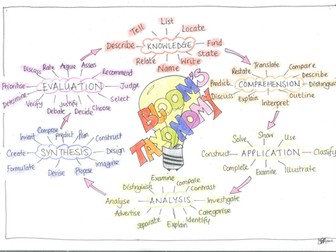 List
Tell
Locate
Describe
KNOWLEDGE
Find
state
Relate
Name
Write
Translate
Restate
Compare
describe
Predict
COMPREHENSION
Distinguish
Discuss
Explain
outline
Interpret
Solve
Show
Use
Construct
APPLICATION
Classify
Complete
Examine
Illustrate
Examine
Compare
Distinguish
Contrast
Analyse
ANALYSIS
Investigate
Advertise
Categorise
Separate
Explain
Identify
Invent
Compose
predict
Plan
Construct
Create
SYNTHESIS
Design
Formulate
Imagine
Devise
Propose
Discuss
Rate
Argue
Assess
Recommend
Prioritise
EVALUATION
Judge
Determine
Select
Verify
Debate
justify
Decide
Choose
BLOOM'S
TAXONOMY